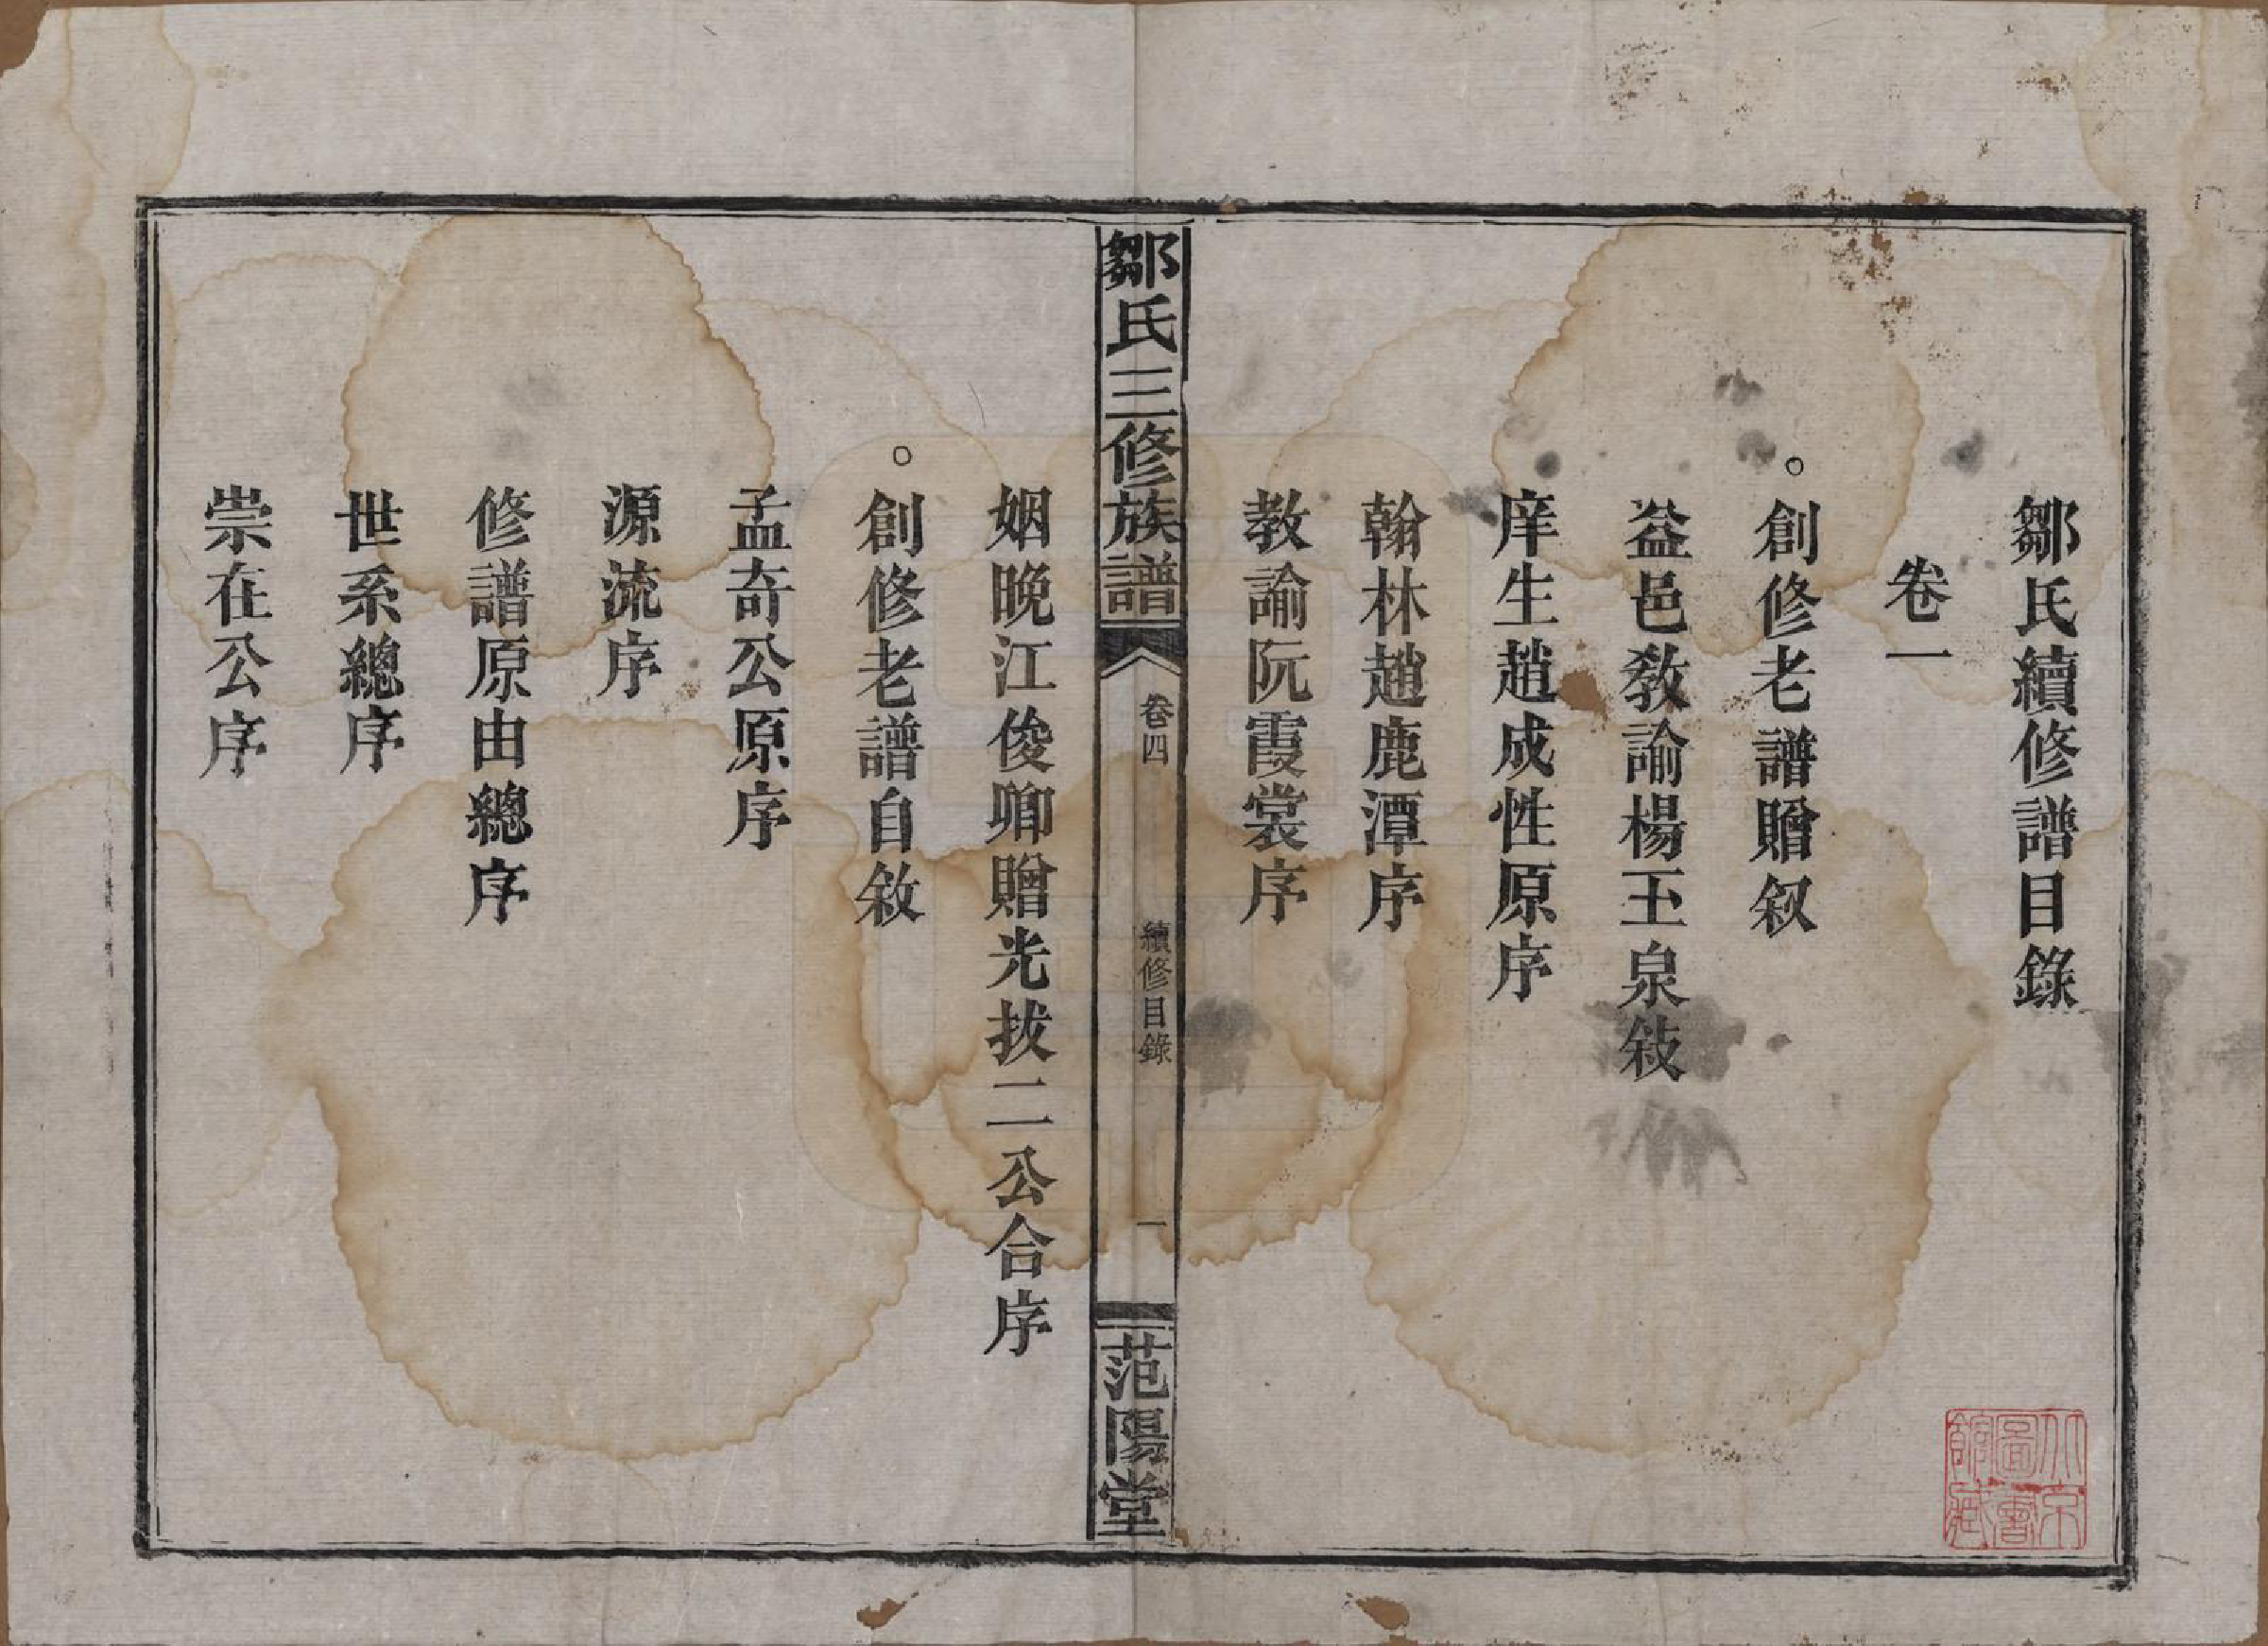 鄒氏續修譜目錄
卷一
○創修老譜贈叙
益邑教諭楊玉泉敍
庠生趙成性原序
翰林趙鹿潭序
教諭阮霞裳序
鄒氏三修族譜
卷四
續修目錄
一
范陽堂
姻晚江俊卿贈光拔二公合序
○創修老譜自敘
孟奇公原序
源流序
修譜原由總序
世系總序
崇在公序
北京圖書館藏